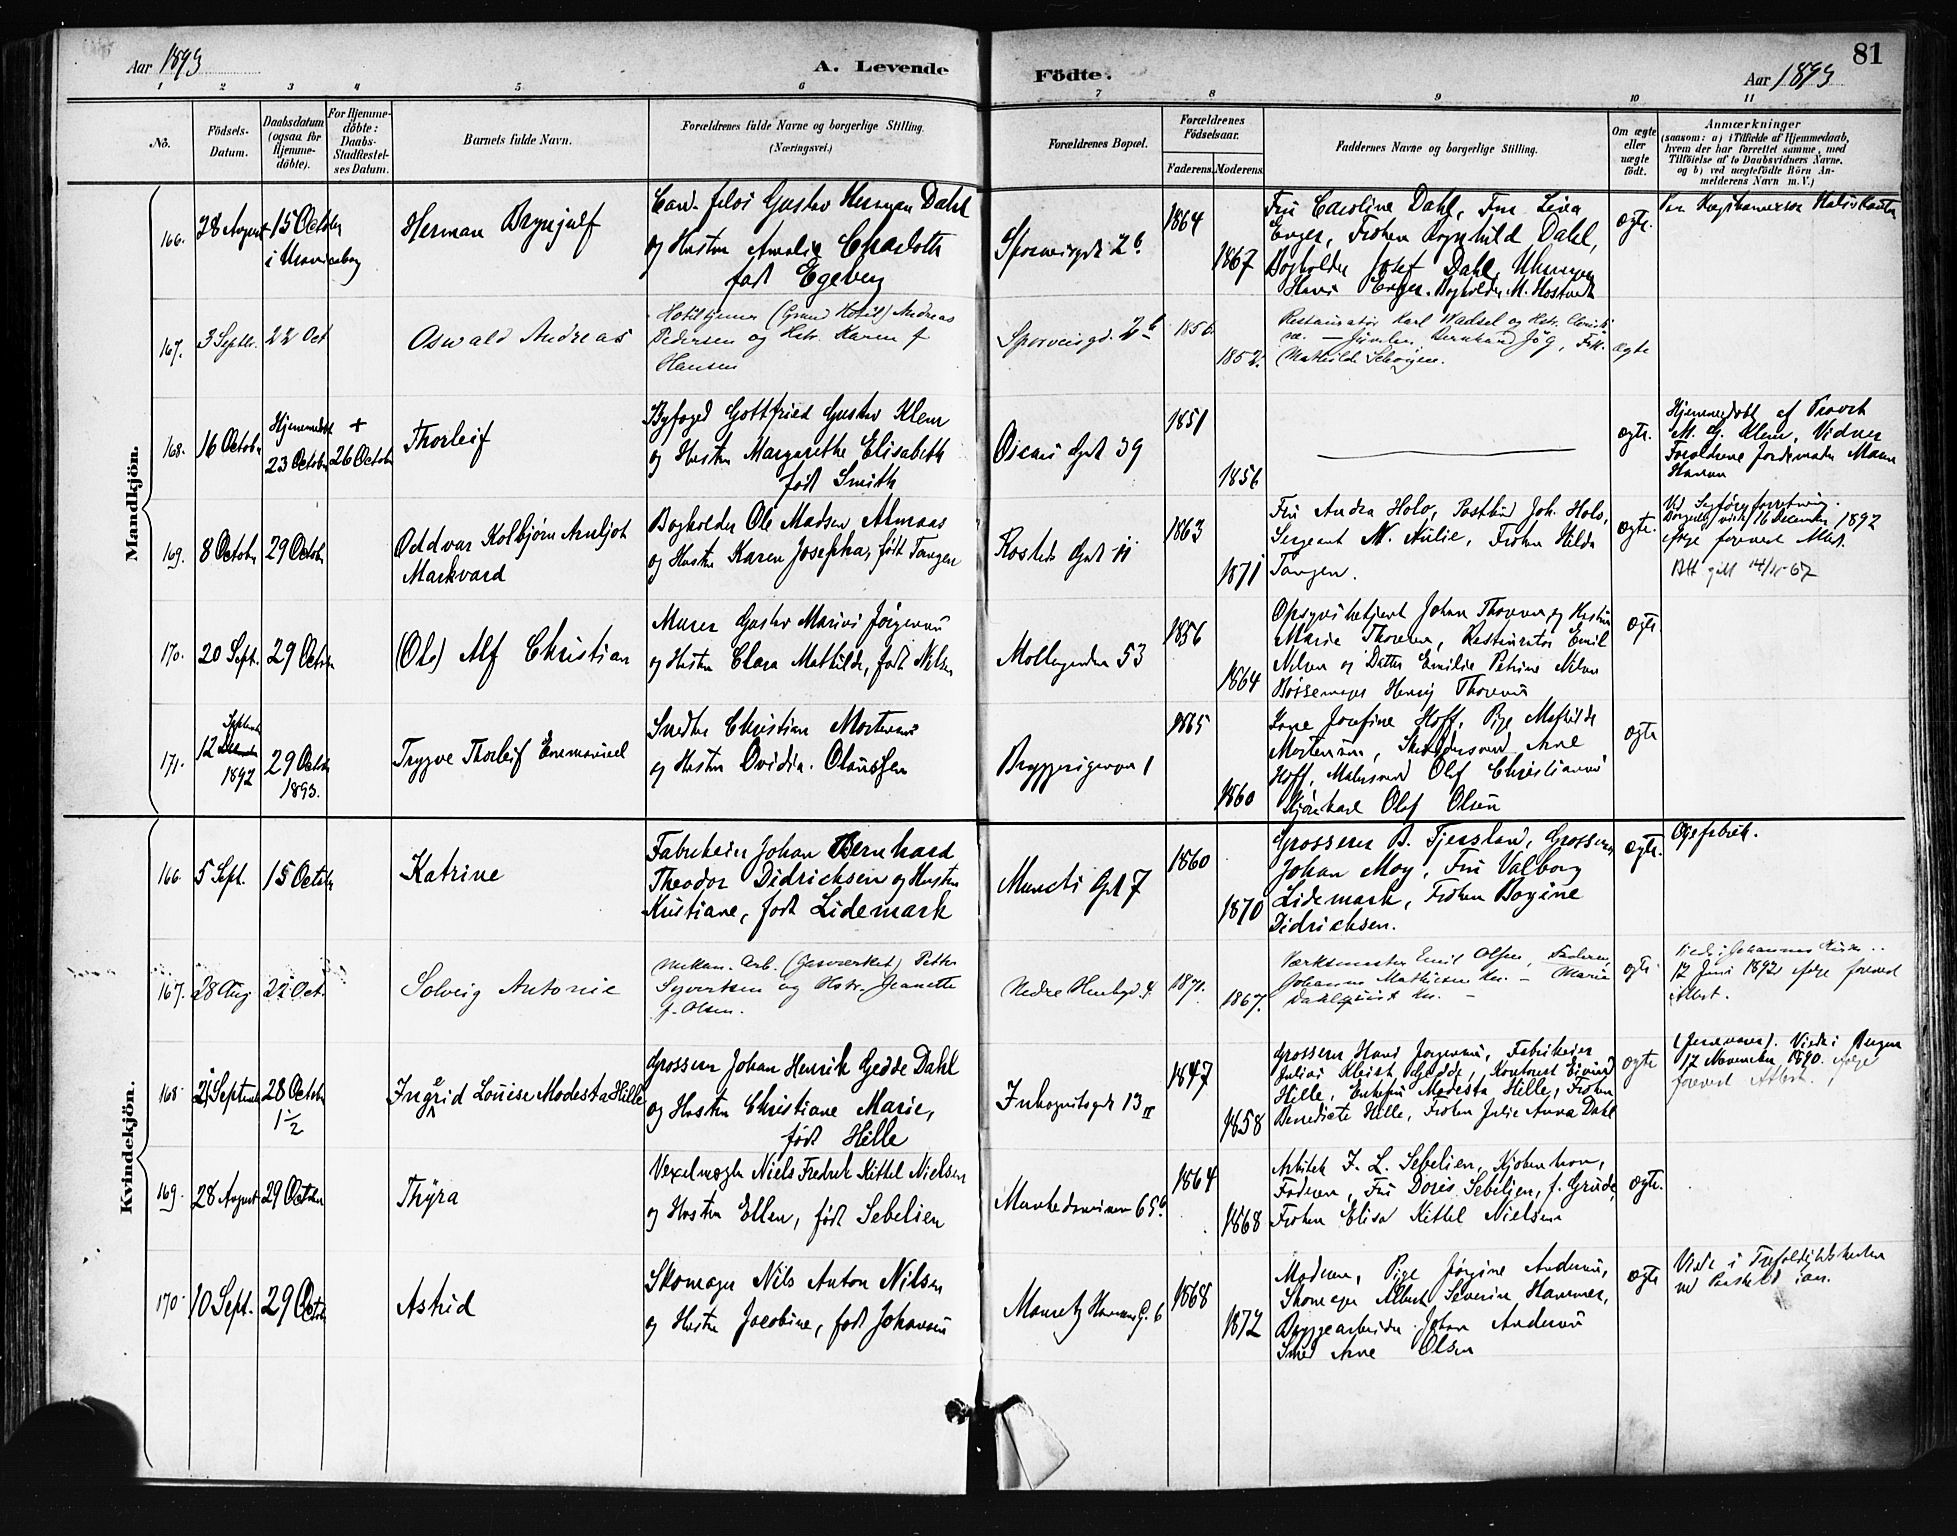 81
Aar 1893
A. Levende
Födte.
Aar 1893
1 2 3 4 5 6 7 8 9 10 11
No.
Födsels-Datum.
Daabsdatum (ogsaa for Hjemmedöbte).
For Hjemmedöbte: Daabs-Stadfæstelses Datum.
Barnets fulde Navn.
Forældrenes fulde Navne og borgerlige Stilling.
(Næringsvei.)
Forældrenes Bopæl.
Forældrenes Födselsaar.
Faderens. Moderens.
Faddernes Navne og borgerlige Stilling.
Om ægte eller uægte födt.
Anmærkninger
(saasom: a) i Tilfælde af Hjemmedaab, hvem der har forrettet samme, med Tilföielse af to Daabsvidners Navne, og b) ved uægtefödte Börn Anmelderens Navn m. V.)
Mandkjön.
166. 28 August 15 October
Herman Brynjulf
Cand. filos Gustav Herman Dahl
og Hustru Amalie Charlotte
født Egeberg
Sporveisgd. 2b
1864
1867
Fru Caroline Dahl, Fru
Enger, Frøken Ragnhild Dahl,
Bogholder Josef Dahl,
ægte.
167. 3 Septbr. 22 Oct
Oswald Andreas
(Grand Hotel) Andreas
Pedersen og Hstr. Karen f.
Hansen
Sporveisgd. 2b
1856.
1852.
Restauratør Karl
Mathilde
ægte
168. 16 October Hjemmedøbt 23 October + 26 October
Thorleif
Byfoged Gottfried Gustav Klem
og Hustru Margarethe Elisabeth
født Smith
Oscars Gade 39
1851
1856
ægte.
Hjemmedøbt af Provst
M. G. Klem, Vidner
Forældrene Jordemoder
Hansen
169. 8 October 29 October
Oddvar Kolbjørn Arnljot
Markvard
Bogholder Ole Madsen Almaas
og Hustru Karen Josepha, født Tangen
Rosteds Gade 11
1863
1871
Fru Andrea Holo, Postbud Joh. Holo,
Sergeant N. Aulie, Frøken Hilda
Tangen.
ægte.
16 December 1892
ifølge forevist Attest.
Att. gitt 14/11-67
170. 20 Sept. 29 October
(Ole) Alf Christian
Murer Gustav Marius Jørgensen
og Hustru Clara Mathilde, født Nielsen
Møllergaden 53
1856
1864
Opsynsbetjent Johan Thoresen og Hustru
Marie Thoresen, Restauratør Emil
Nilsen og Datter Emilie Petrine Nilsen
Børsemager Henrij Thoresen
ægte
171. 12 September 1892 29 October 1893.
Trygve Thorleif Enemanuel
Snedker Christian Mortensen
og Hustru Ovidia Olaussen
Bryggerigaden 1
1865
1860
Josefine Hoff, Pige Mathilde
Mortensen, Arne
Hoff, Malersvend Olaf Christiansen
Olaf Olsen
ægte
Kvindekjön.
166. 5 Sept. 15 October
Katrine
Fabrikeier Johan Bernhard
Theodor Didrichsen og Hustru
Kristiane, født Lidemark
Munchs Gade 7
1860
1870
Grosserer B. Tjersland, Grosserer
Johan Moy, Fru Valborg
Lidemark, Frøken Bogine
Didrichsen.
ægte.
167. 28 Aug 22 Oct.
Solveig Antonie
Mekan. Arb. (Gasværket) Petter
Syvertsen og Hstr. Jeanette
f. Olsen.
1871.
1867.
Værksmester Emil Olsen, Faderen,
Johanne Mathiesen Marie
Dahlquist
ægte
Viede i Johannes Kirke
12 Juni 1892 ifølge forevist
Attest.
168. 21 September 28 October 1½
Ingerid Louise Modesta Hille
Grosserer Johan Henrik Gedde Dahl
og Hustru Christiane Marie,
født Hille
Inkognitogd. 13 II
1847
1858
Grosserer Hans Jørgensen, Fabrikeier
Julius Kleist Gedde, Kontorist Eivind
Hille, Enkefru Modesta Hille, Frøken
Benedicte Hille, Frøken Julie Anna Dahl
ægte
Viede i Bergen
12 November 1890. ifølge
forevist Attest.
169. 28 August 29 October
Thyra
Vexelmægler Niels Fredrik Kittel Nielsen
og Hustru Ellen, født Sebelien
Munkedamsveien 65b.
1864
1868
Arkitekt J. L. Sebelien, Kjøbenhavn,
Faderen, Fru Doris Sebelien, f. Grude
Frøken Elisa Kittel Nielsen
ægte.
170. 10 Sept. 29 October
Astrid
Skomager Nils Anton Nilsen
og Hustru Jacobine, født Johansen
Mauretz Hansens G. 6
1868
1872
Moderen, Pige Jørgine Andersen,
Skomager Albert Severin Hammer,
Bryggearbeider Johan Andersen
Smed Arne Olsen
ægte
Viede i Trefoldighedskirken